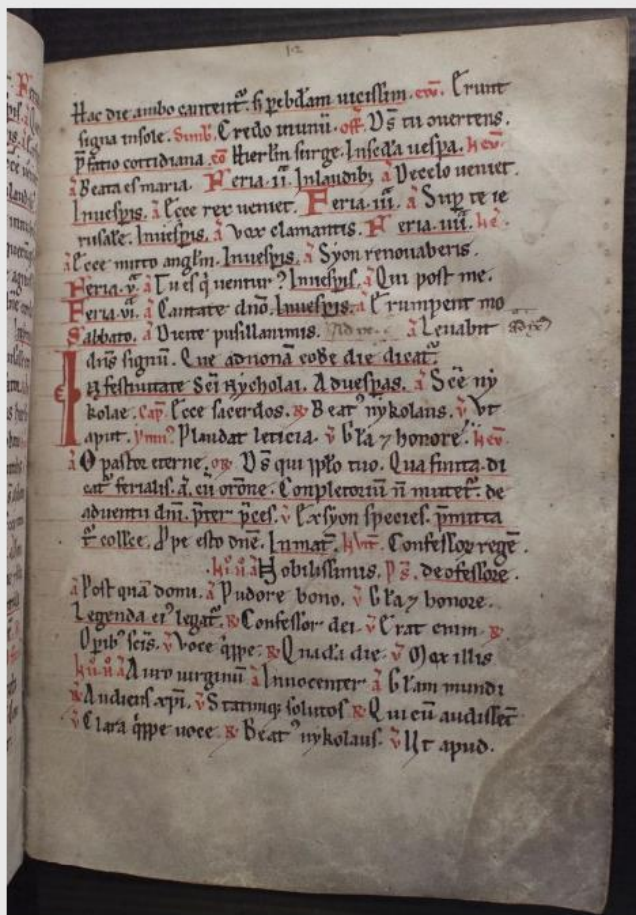 12
Hac die ambo cantent᷒. ħ p ebdăm uicissim. eu͞u. Erunt
signa insole. Simb. Credo inunū. off. D̄s tu ōuertens.
p̄fatio cottidiana. cō Hierl̄m surge. Insc̄da uespa. heu͞v.
ā Beata es maria. Feria. ii. Inlaudib; ā Decelo ueniet.
Inuesp̄is. ā Ecce rex ueniet. Feria. iii. ā Sup̄ te ie
rusale. Inuesp̄is. ā vox clamantis. Feria. iiii.
ā Ecce mitto angl̄m. Inuesp̄is. ā Syon renouaberis.
Feria. v. ā Tu es q̇ uentur᷒? Inuesp̄is. ā Qui post me.
Feria. vi. ā Cantate dn̄o. Inuesp̄is. ā Erumpent mo
Sabbato. ā Dicite pusillanimis. ā Leuabit
dn̄s signū. Que adnonā eode die dicat᷒.
In festiuitate Sc̄i Nycholai. Aduesp̄as. ā Sc̄e ny
kolae. Cap̄. Ecce sacerdos. ꝶ Beat᷒ nykolaus. v̄ Vt
aput. ymn᷒? Plaudat leticia. v̄ Gl̄a ⁊ honore.
ā O pastor eterne. or̄. D̄s qui pp̄lo tuo. Qua finita. di
cat᷒ ferialis. ā. cū or̄one. Conpletoriū n̄ mutet᷒. de
aduentu dn̄i. p̄ter p̄ces. v̄ Ex syon species. p̄mitta
t᷒ coll̄ce. Ppe esto dn̄e. Inmat̄. Inuit̄. Confessor regē.
.hi. ii. ā Nobilissimus. Ps̄. de ɔfessore.
ā Post quā domi. ā Pudore bono. v̄ Gl̄a ⁊ honore.
Legenda ei᷒ legat᷒. ꝶ Confessor dei. v̄ Erat enim. ꝶ
Op̄ib᷒ sc̄is. v̄ Voce q̇ppe. ꝶ Quadā die. v̄ Mox illis
ā Auro uirginū ā Innocenter ā Gl̄am mundi
ꝶ Audiens xp̄i. v̄ Statimq; solutos ꝶ Qui cū audissēt
v̄ Clara q̇ppe uoce. ꝶ Beat᷒ nykolaus. v̄ Vt apud.